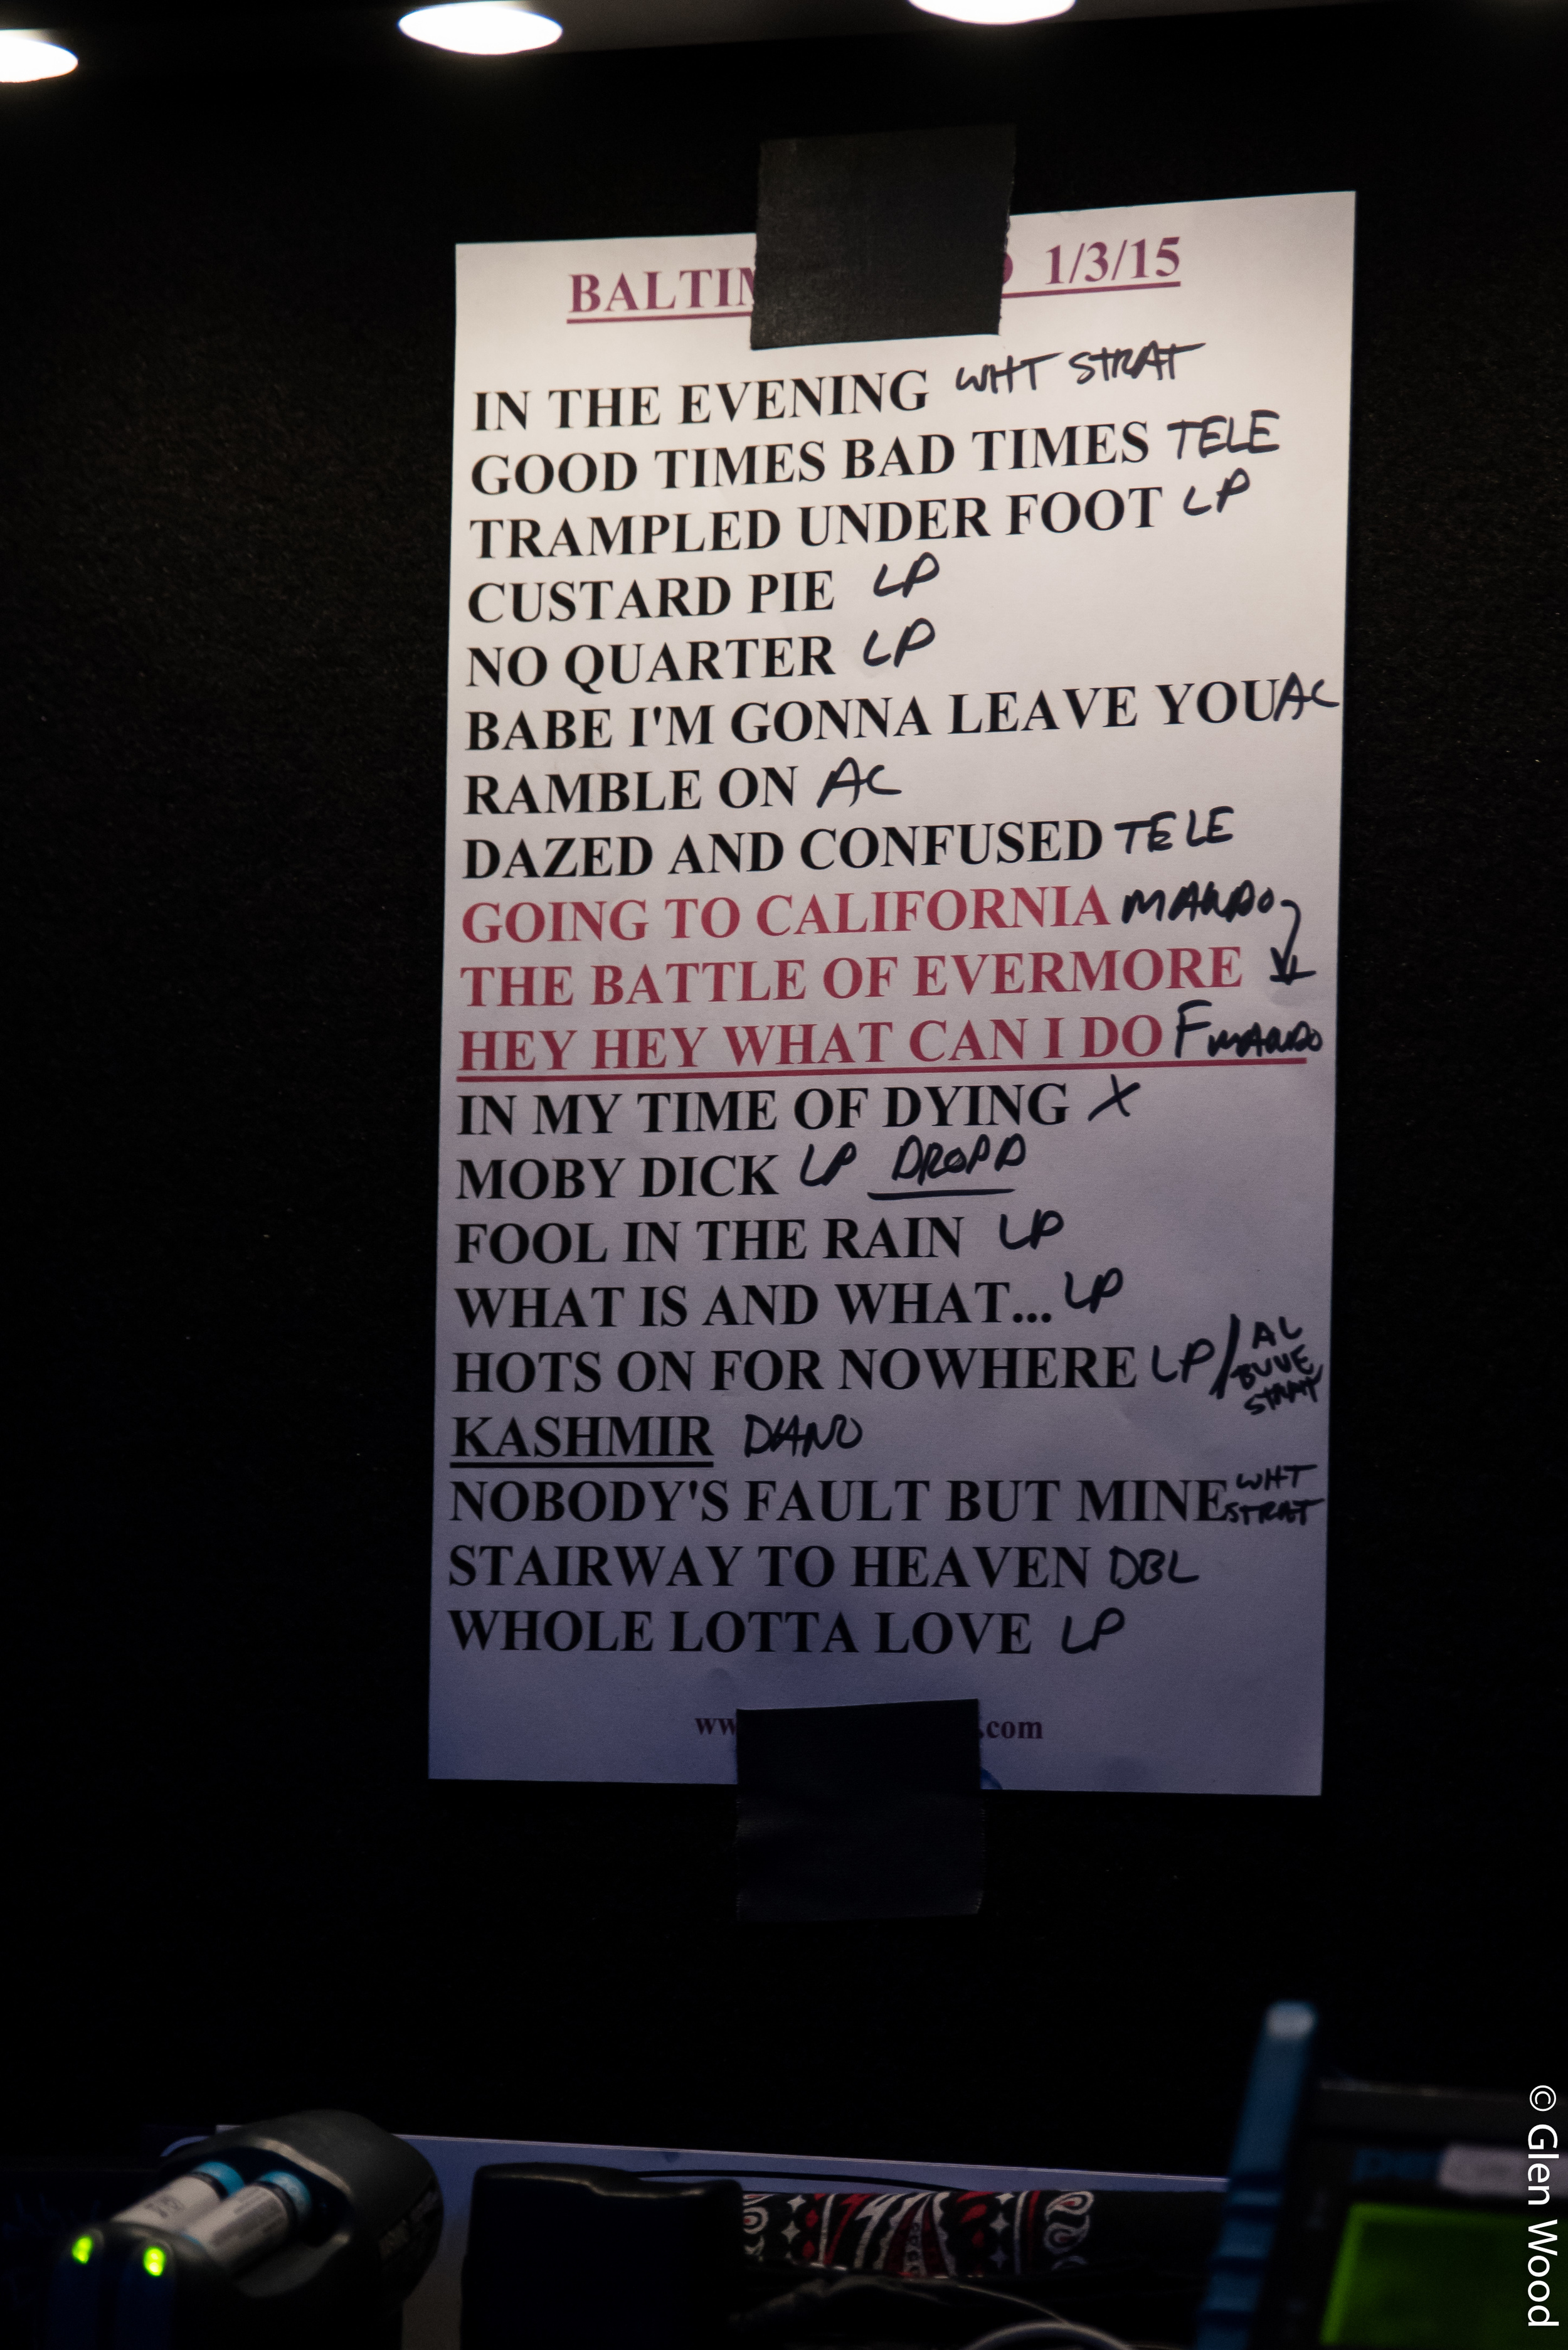 BALTIM 1/3/15
IN THE EVENING WHT STRAT
GOOD TIMES BAD TIMES TELE
TRAMPLED UNDER FOOT LP
CUSTARD PIE LP
NO QUARTER LP
BABE I'M GONNA LEAVE YOU AC
RAMBLE ON AC
DAZED AND CONFUSED TELE
GOING TO CALIFORNIA MANDO
THE BATTLE OF EVERMORE
HEY HEY WHAT CAN I DO F MANDO
IN MY TIME OF DYING X
MOBY DICK LP DROP D
FOOL IN THE RAIN LP
WHAT IS AND WHAT... LP
HOTS ON FOR NOWHERE LP/AL
BLUE
STRAT
KASHMIR DANO
NOBODY'S FAULT BUT MINE WHT
STRAT
STAIRWAY TO HEAVEN DBL
WHOLE LOTTA LOVE LP
ww .com
© Glen Wood